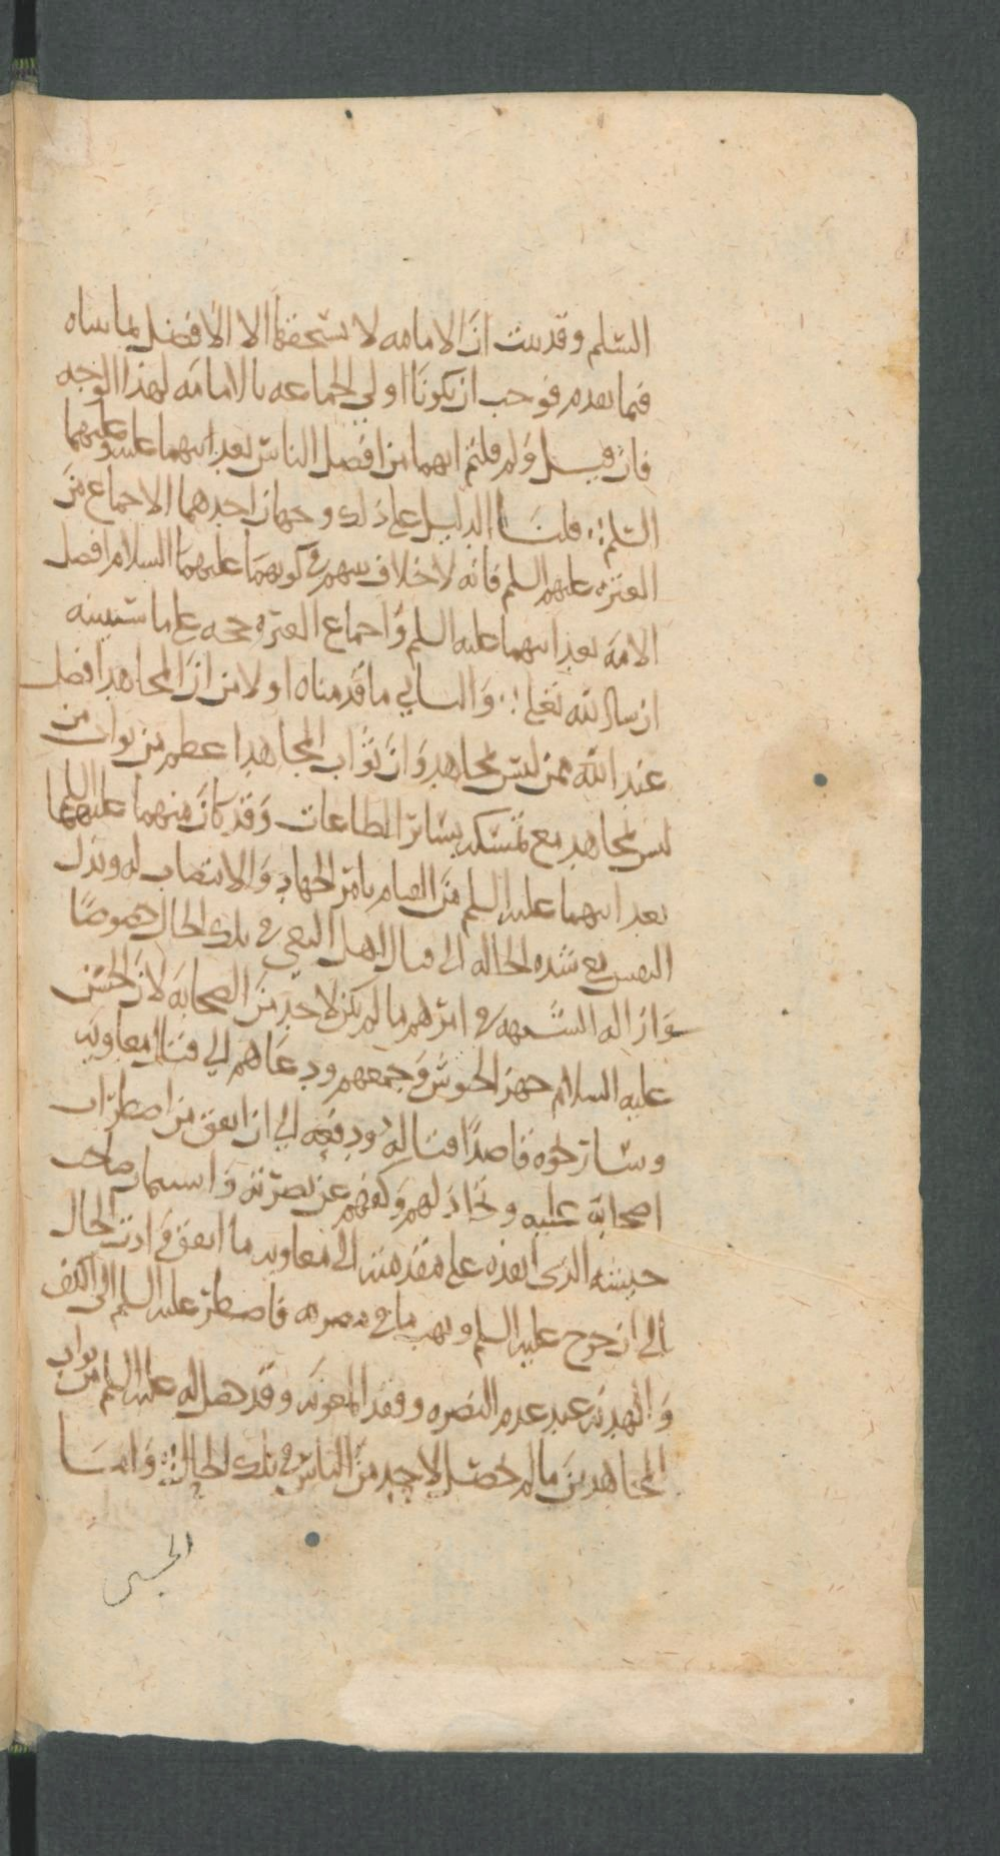 السلم وقد بينت ان الامامه لا يستحقها الا الافضل لما بيناه
فيما تقدم فوجب ان يكونا اولى الجماعه بالامامه لهذا الوجه
فان قيل ولم قلتم انهما من افضل الناس بعد ابيهما عليه وعليهما
السلم قلنا الدليل على ذلك وجهان احدهما الاجماع من
العتره عليهم السلم فانه لا خلاف بينهم في كونهما عليهما السلام افضل
الامة بعد ابيهما عليه السلم واجماع العتره حجه على ما سنبينه
ان شا الله تعلى والثاني ما قدمناه اولا من ان المجاهد افضل
عند الله ممن ليس بمجاهد وان ثواب المجاهد اعظم من ثواب من
ليس بمجاهد مع تمسكه بسائر الطاعات وقد كان منهما عليهما السلم
بعد ابيهما عليه السلم من القيام بامر الجهاد والانتصاب له وبذل
النفس مع شده الحاله الى قتال اهل البغي في تلك الحال خصوصًا
وازاله الشبهه في امرهم ما لم يكن لاحد من الصحابه لان الحسن
عليه السلام جهز الجيوش وجمعهم ودعاهم الى قتال معاويه
وسار نحوه قاصدًا قتاله ودفعه الى ان اتفق من اضطراب
اصحابه عليه وتخاذلهم وكفهم عن نصرته واستيمان صاحب
جيشه الذي انفذه على مقدمته الى معاويه ما اتفق وادت الحال
الى ان جرح عليه السلم ونهب ما في مضربه فاضطر عليه السلم الى الكف
والهدنه عند عدم النصره وفقد المعونه وقد حصل له عليه السلم من ثواب
المجاهدين ما لم يحصل لاحد من الناس في تلك الحال واما
الحسين